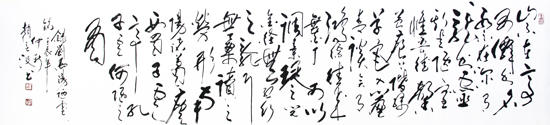 山不在高
有僊則名
水不在深有
龍則靈
斯是陋室
惟吾德馨
苔痕上階綠
草色入簾
青談笑有
鴻儒往來
無白丁可以
調素琴閱
金經無絲竹
之亂耳
無案牘之
勞形南
陽諸葛廬
西蜀子雲
亭孔
子云何陋之
有
錄劉禹錫陋室
銘
仲秋